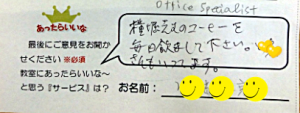 Office Specialist
あったらいいな
最後にご意見をお聞か
せください ※必須
教室にあったらいいな～
と思う『サービス』は？
のコーヒーを
毎日飲まして下さい。
ます。
お名前：